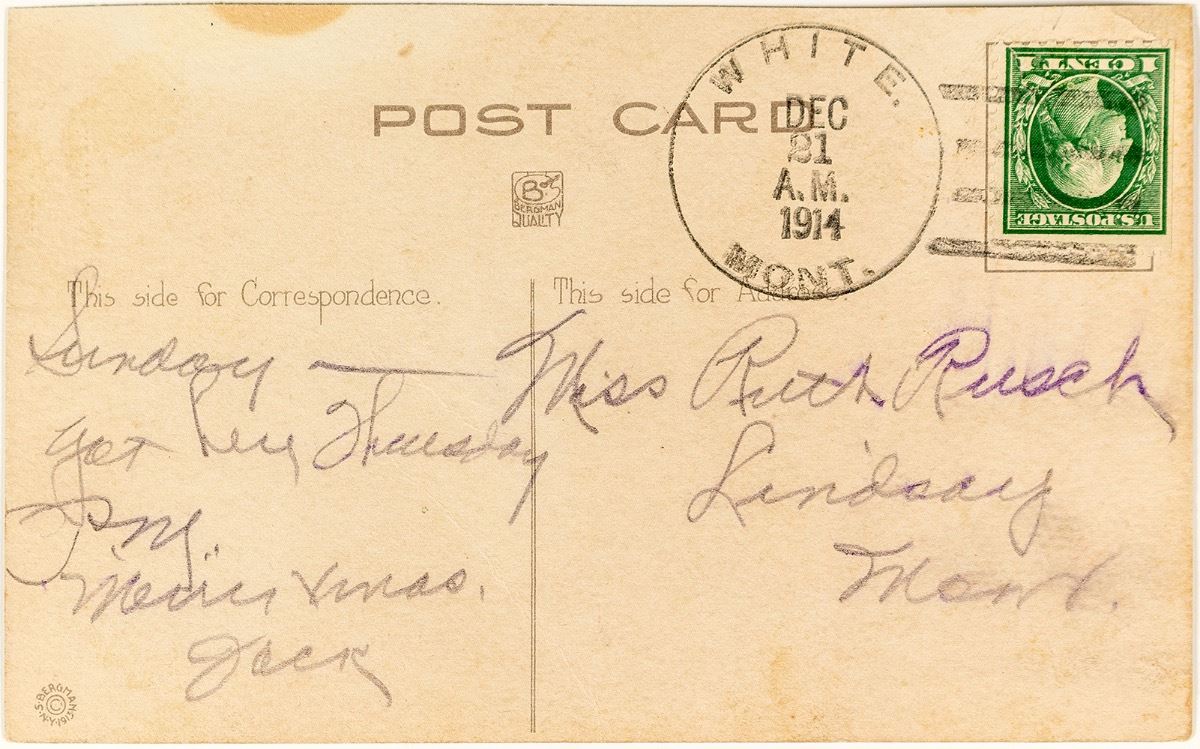 POST CARD
WHITE.
DEC
21
A.M.
1914
MONT.
1 CENT 1
U.S. POSTAGE
B
BERGMAN
QUALITY
This side for Correspondence.
Sunday —
got here Thursday
P.M.
"Merry Xmas.
Jack
This side for Address.
Miss Ruth Rusch
Lindsay
Mont.
S. BERGMAN
© N.Y. 1913